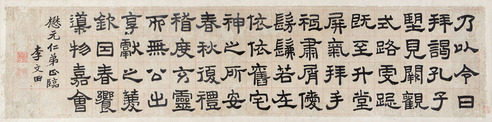 乃以令日
拜謁孔子
望見闕觀
式路虔跽
既至升堂
屏氣拜手
祗肅屑僾
髣髴若在
依依舊宅
神之所安
春秋復禮
稽度玄靈
而無公出
享獻之薦
欽因春饗
導物嘉會
懋元仁弟正臨
李文田